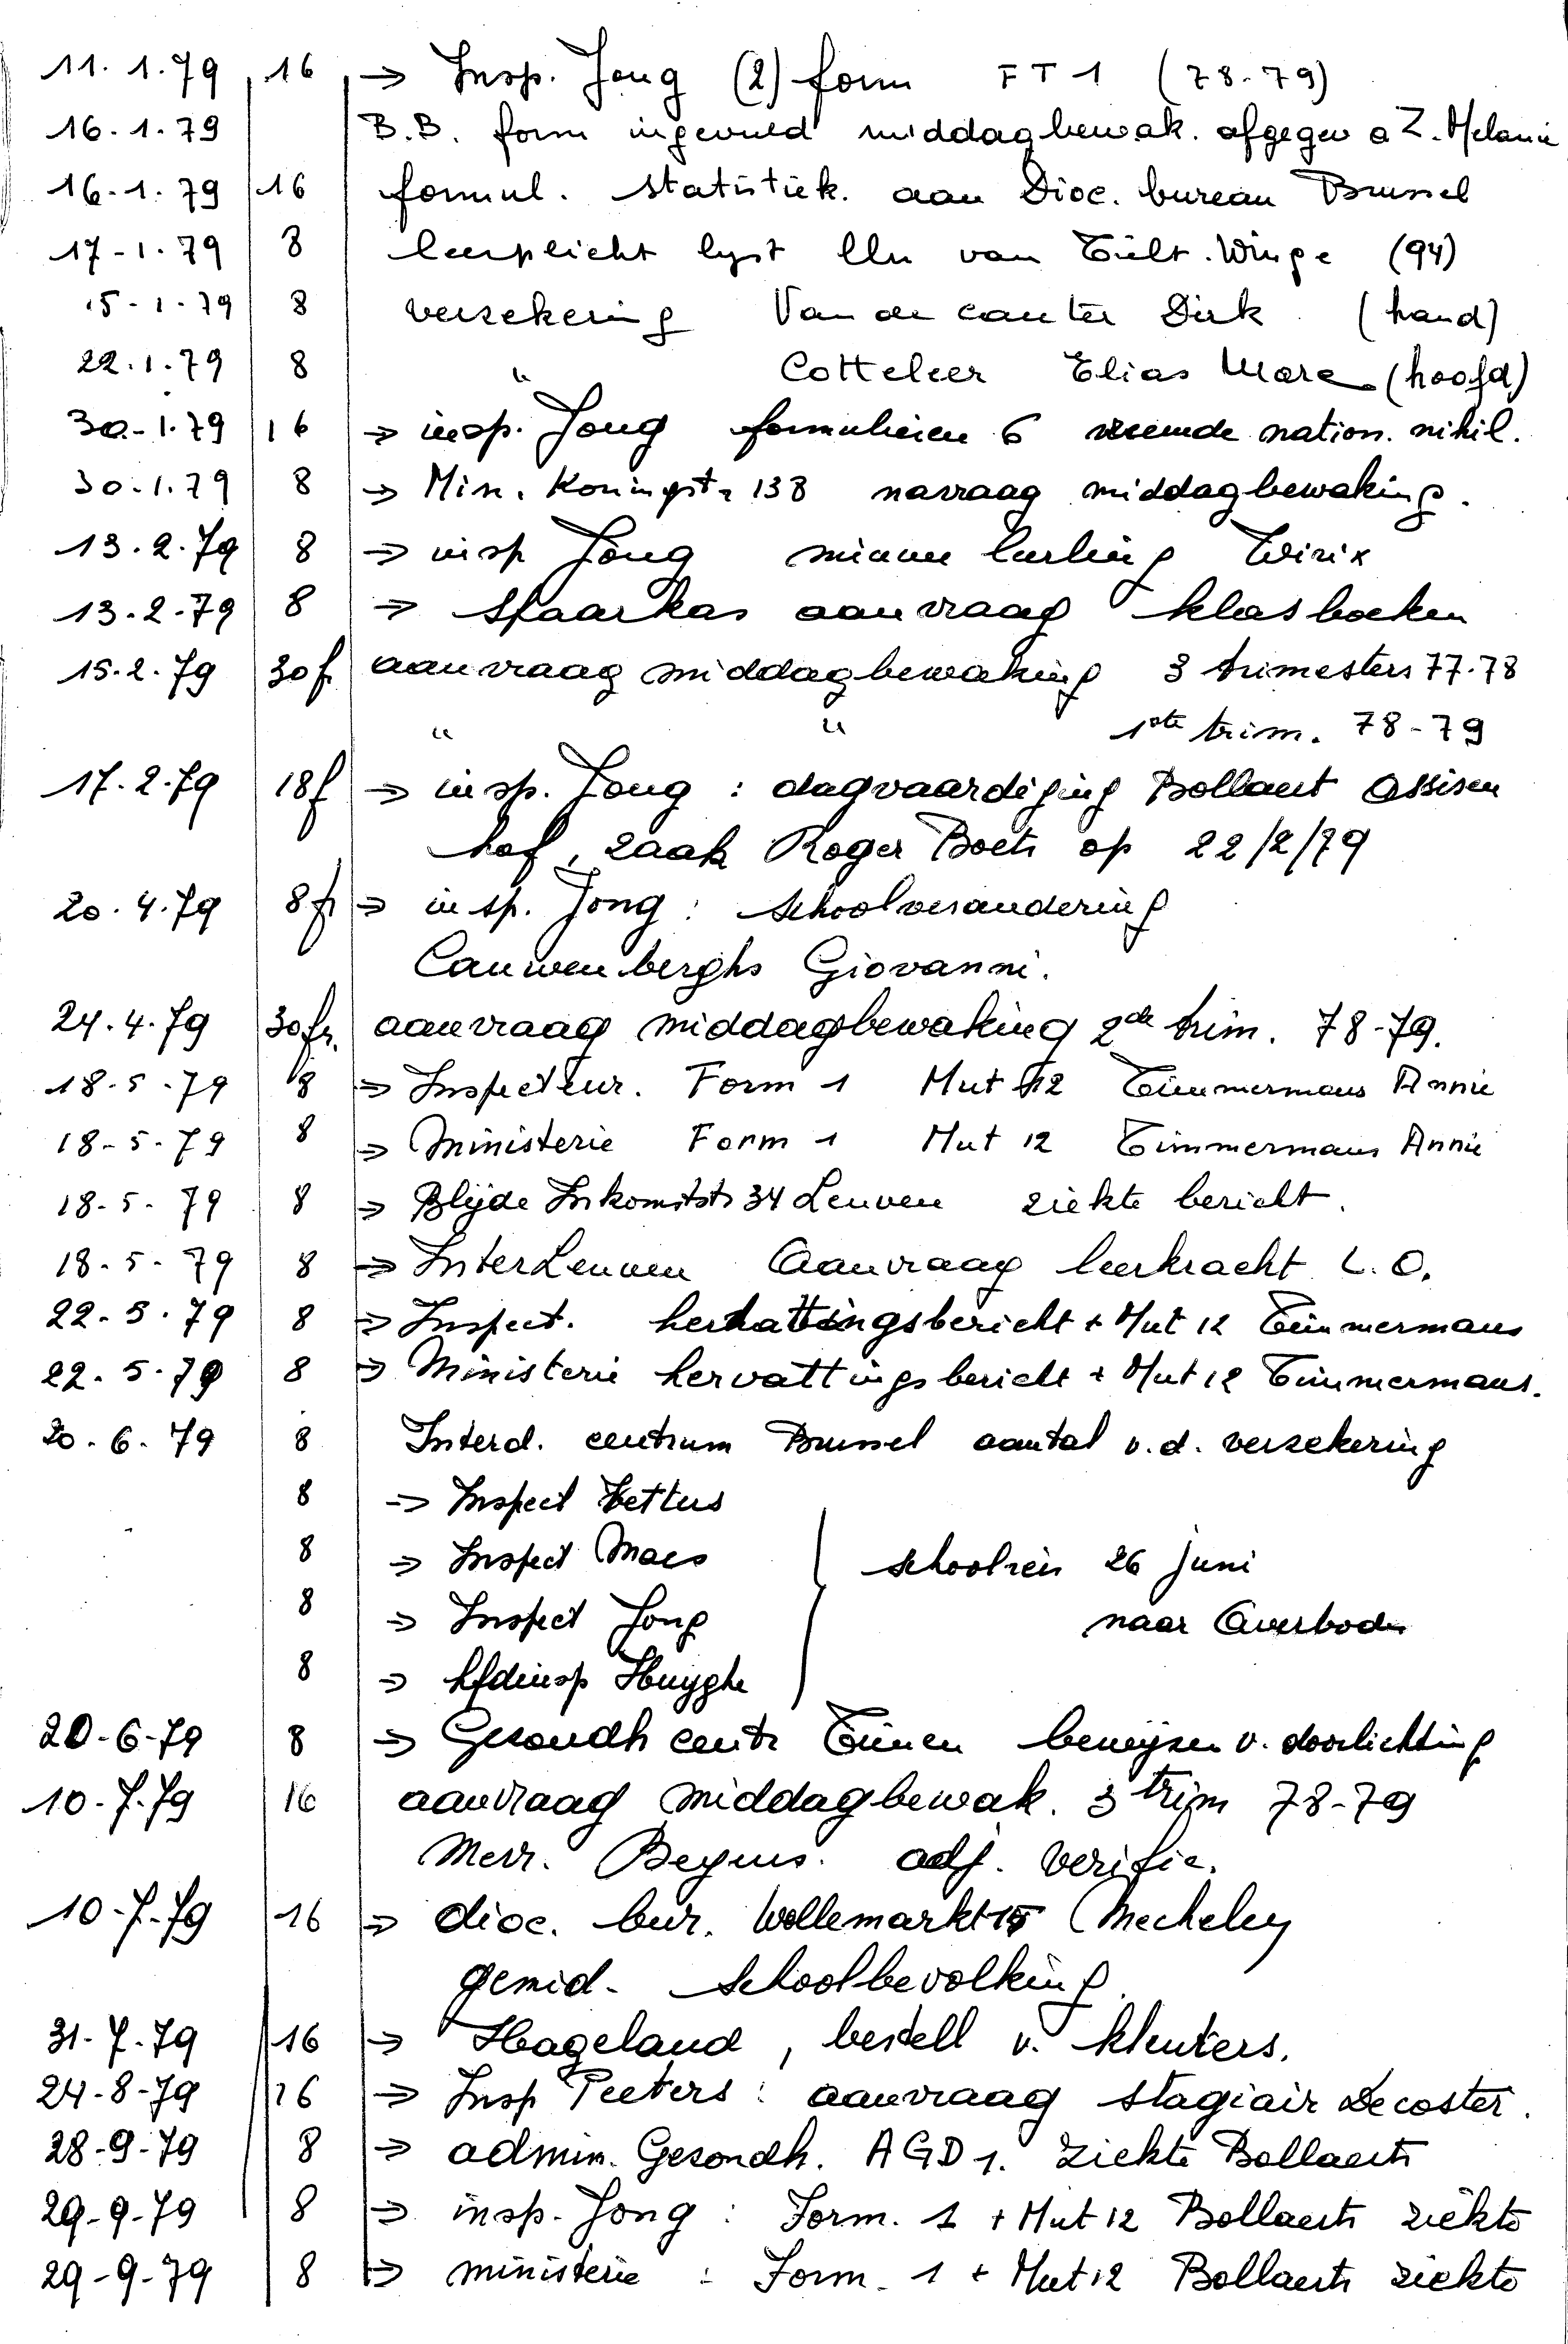 11.1.79 16 → Insp. Jong (2) form FT1 (78-79)
16.1.79 B.B. form ingevuld middagbewak. afgegev a Z. Melanie
16.1.79 16 formul. statistiek. aan Dioc. bureau Brussel
17-1.79 8 leerplicht lyst lln van Tielt.Winge (94)
15-1-79 8 verzekering Van de cauter Dirk (hand)
22.1.79 8 " Cotteleer Elias Marc (hoofd)
30-1.79 16 → insp. Jong formulieren 6 vreemde nation. nihil.
30.1.79 8 → Min. Koningstr 138 navraag middagbewaking.
13.2.79 8 → insp Jong nieuwe leerling Wirix
13.2.79 8 → spaarkas aanvraag klasboeken
15.2.79 30f. aanvraag middagbewaking 3 trimesters 77.78
" " 1ste trim. 78-79
17.2.79 18f → insp. Jong : dagvaardiging Bollaert Assisen
hof, zaak Roger Boets op 22/2/79
20.4.79 8fr → insp. Jong : schoolverandering
Cauwenberghs Giovanni.
24.4.79 30fr. aanvraag middagbewaking 2de trim. 78-79.
18.5.79 8 → Inspecteur. Form 1 Mut 12 Timmermans Annie
18-5-79 8 → Ministerie Form 1 Mut 12 Timmermans Annie
18.5.79 8 → Blijde Inkomstst 34 Leuven ziekte bericht.
18.5.79 8 → InterLeuven Aanvraag leerkracht L.O.
22.5.79 8 → Inspect. hervattingsbericht + Mut 12 Timmermans
22.5.79 8 → Ministerie hervattingsbericht + Mut 12 Timmermans.
20.6.79 8 Interd. centrum Brussel aantal v.d. verzekering
8 → Inspect Hettus
8 → Inspect Maes schoolreis 26 juni
8 → Inspect Jong naar Averbode
8 → hfdinsp Huyghe
20-6-79 8 → Gezondh centr Tienen bewijzen v. doorlichting
10-7-79 16 aanvraag middagbewak. 3 trim 78-79
Mevr. Begins. adj. verific.
10-7-79 16 → dioc. bur. Wollemarkt 15 Mechelen
gemid. schoolbevolking.
31-7-79 16 → Hageland, bestell v. kleuters.
24-8-79 16 → Insp Peeters : aanvraag stagiair Decoster.
28-9-79 8 → admin. Gezondh. AGD 1. ziekte Bollaerts
29-9-79 8 → insp. Jong : Form. 1 + Mut 12 Bollaerts ziekte
29-9-79 8 → ministerie : Form. 1 + Mut 12 Bollaerts ziekte